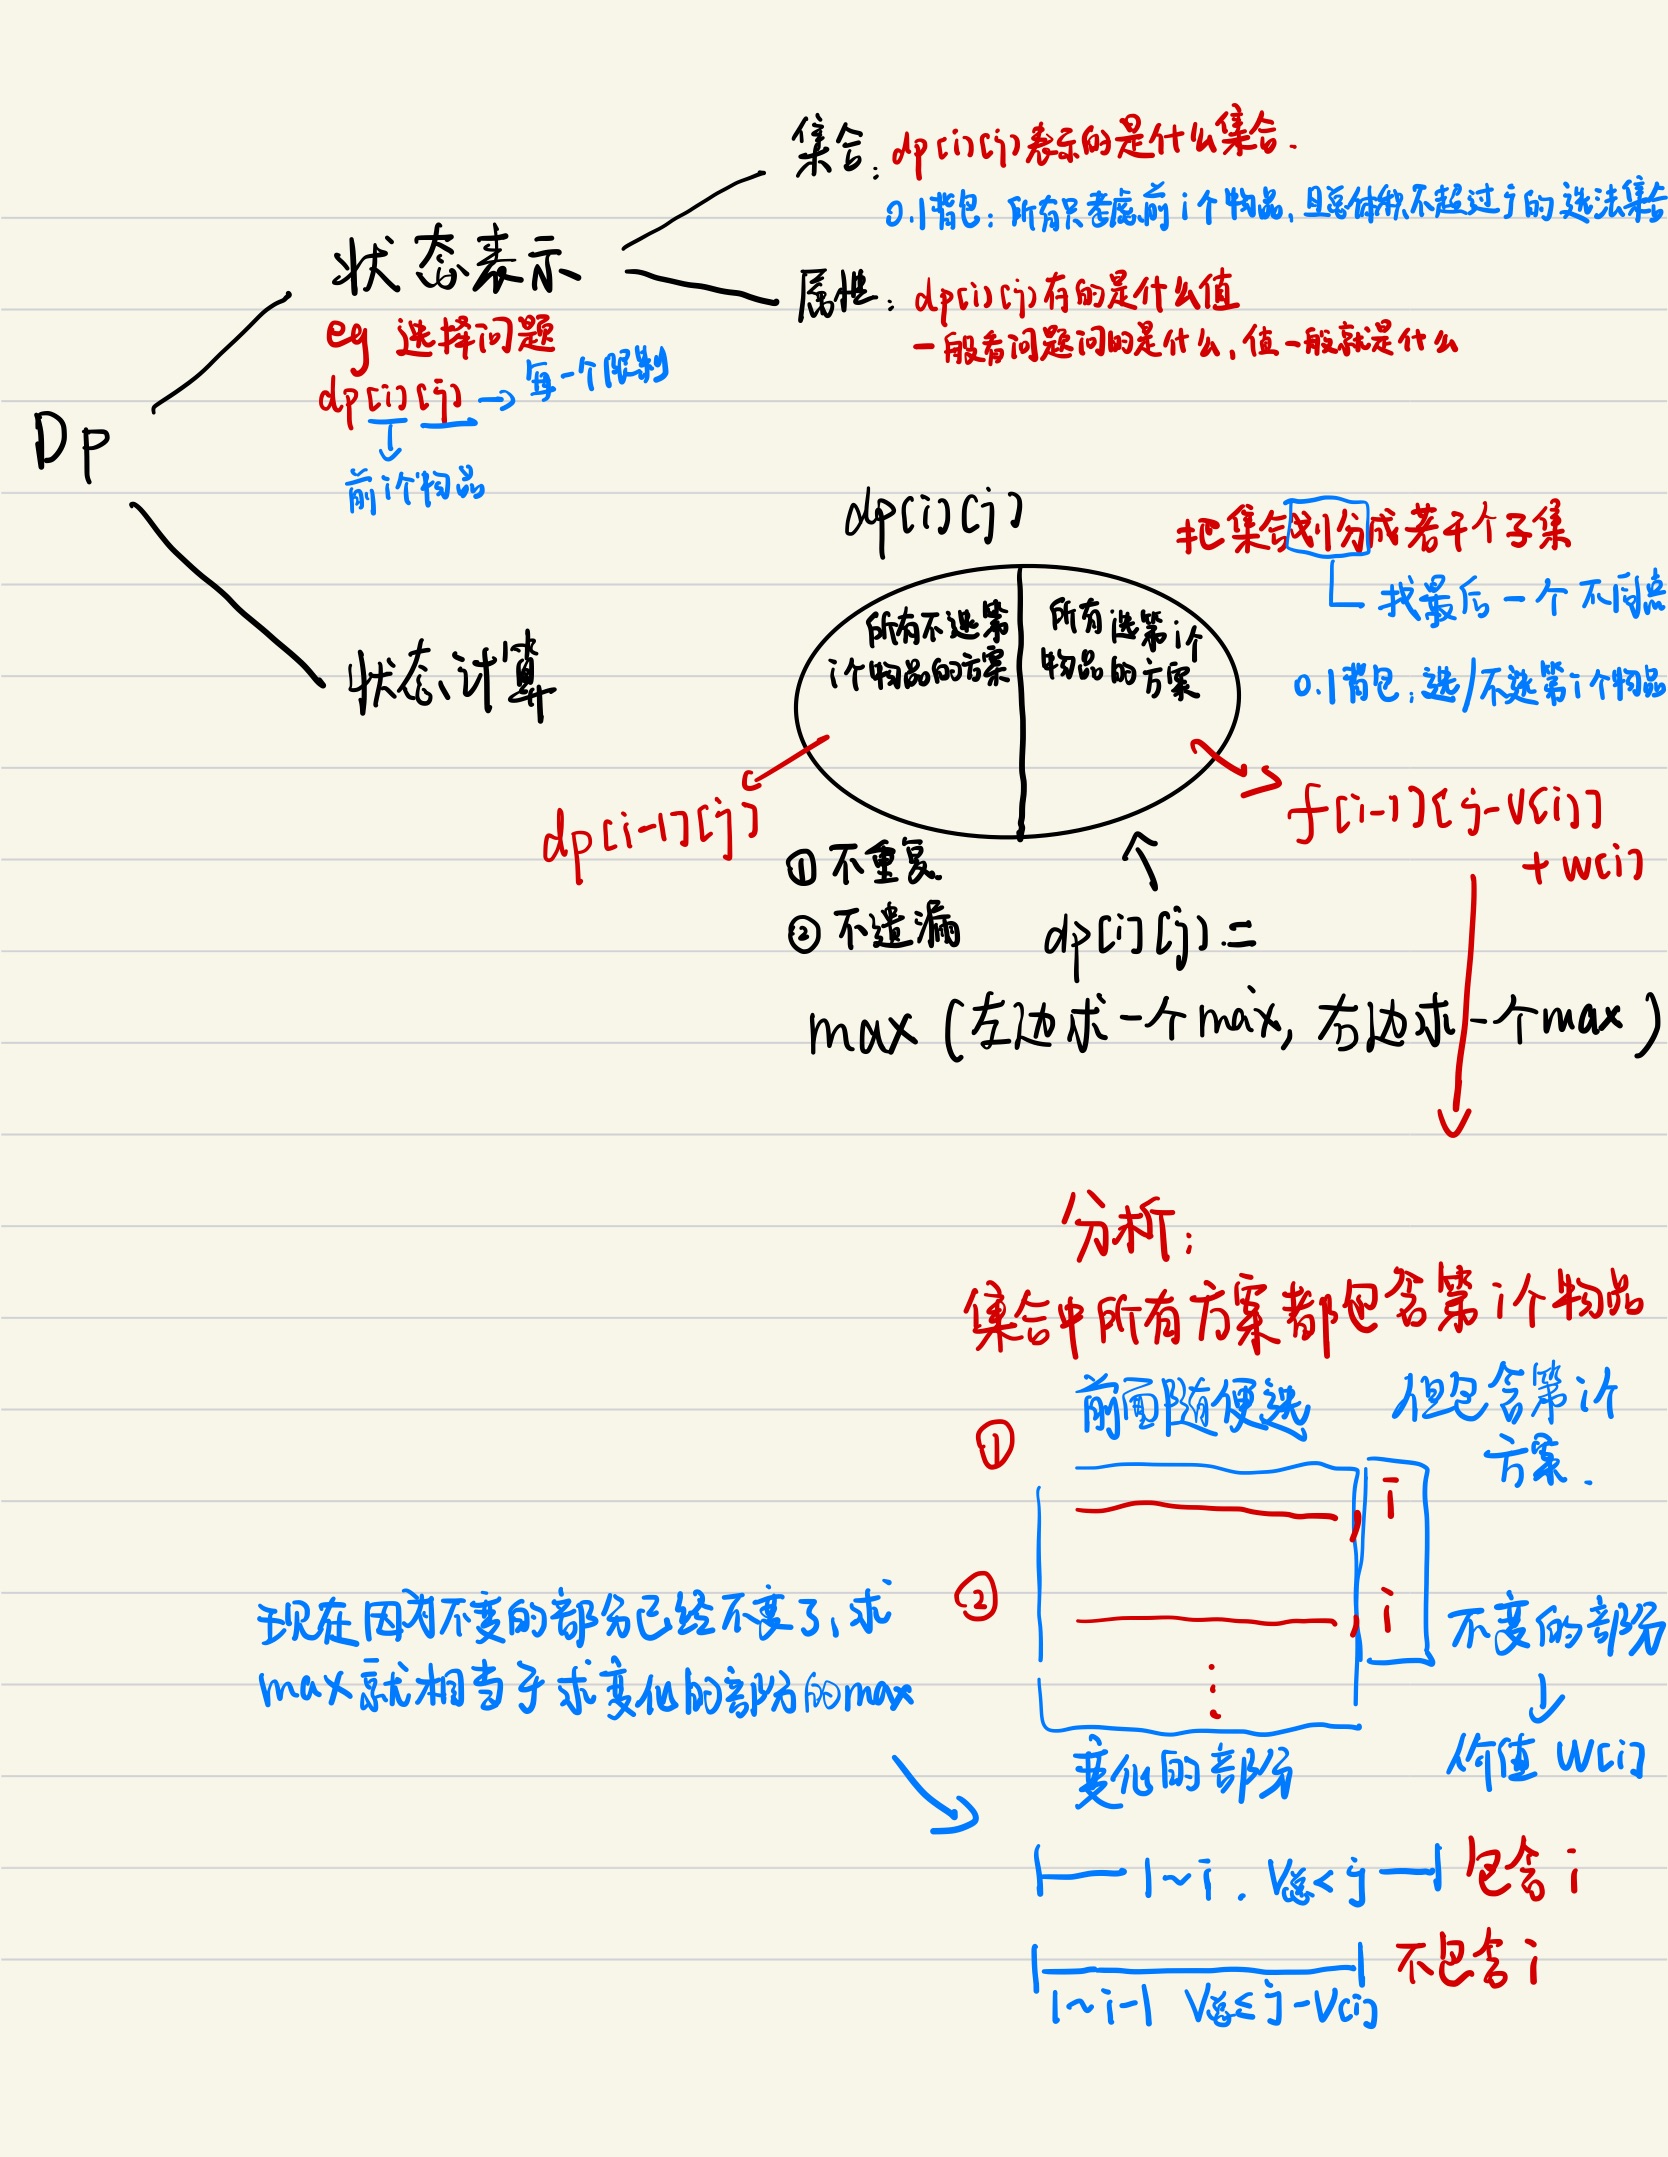 集合：dp[i][j]表示的是什么集合.
0.1背包：所有只考虑前i个物品，且总体积不超过j的选法集合
状态表示
属性：dp[i][j]存的是什么值
一般看问题问的是什么，值一般就是什么
eg 选择问题
dp[i][j] → 每一个限制
前i个物品
Dp
dp[i][j]
把集合划分成若干个子集
找最后一个不同点
0.1背包：选/不选第i个物品
所有不选第
i个物品的方案
所有选第i个
物品的方案
状态计算
dp[i-1][j]
f[i-1][j-V[i]]
+w[i]
① 不重复
② 不遗漏
dp[i][j] =
max (左边求一个max, 右边求一个max)
分析：
集合中所有方案都包含第i个物品
前面随便选
但包含第i个
方案.
①
, i
②
, i
不变的部分
价值 w[i]
变化的部分
现在因为不变的部分已经不变了，求
max就相当于求变化的部分的max
1~i . V总<j 包含i
不包含i
1~i-1 V总≤j-V[i]